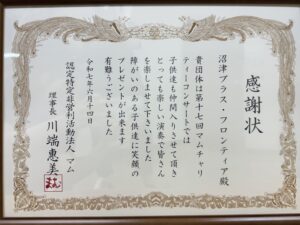 感謝状
沼津ブラス・フロンティア殿
貴団体は第十七回マムチャリ
ティーコンサートでは
子供達も仲間入りさせて頂き
とっても楽しい演奏で皆さん
を楽しませて下さいました
障がいのある子供達に笑顔の
プレゼントが出来ます
有難うございました
令和七年六月十四日
認定特定非営利活動法人 マム
理事長 川端恵美